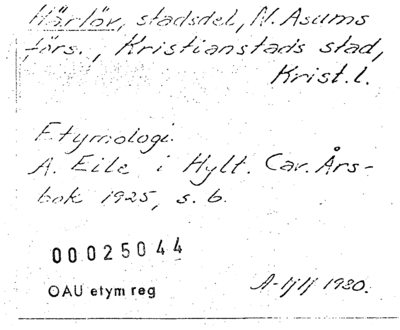 Härlöv, stadsdel, N. Åsums
förs., Kristianstads stad,
Krist. l.
Etymologi.
A. Eile i Hylt. Cav. Års-
bok 1925, s. 6.
00025044
OAU etym reg
1930.